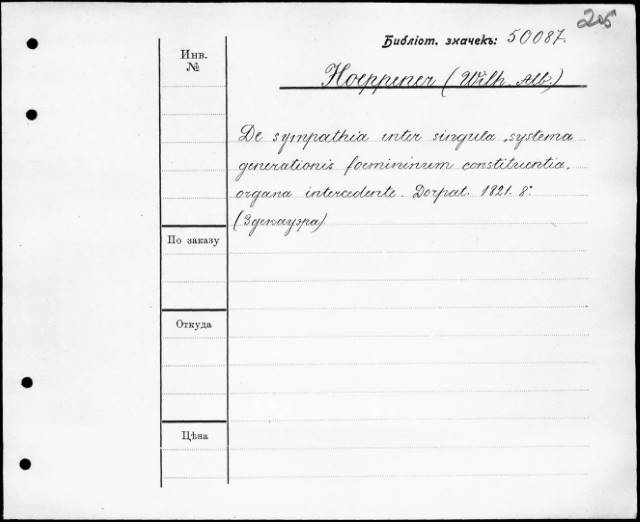 205
Библіот. значекъ: 50087.
Инв.
№
Hoeppener (Wilh. Alb.)
De sympathia inter singula, systema
generationis foemininum constituentia,
organa intercedente. Dorpat. 1821. 8°.
(Здекауэра)
По заказу
Откуда
Цѣна